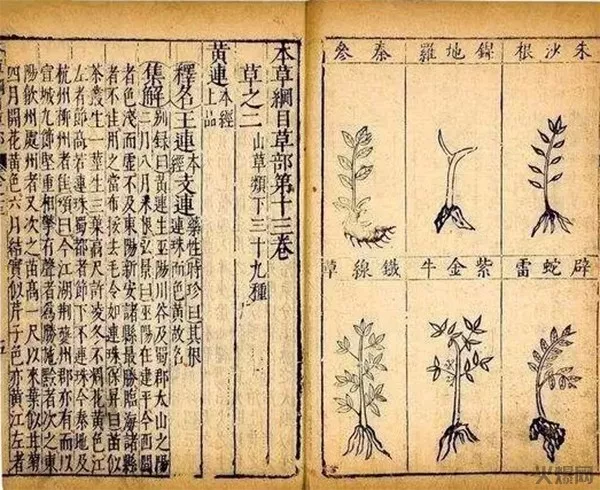 朱沙根
錦地羅
秦參
辟蛇雷
紫金牛
鐵線草
本草綱目草部第十三卷
草之二 山草類下三十九種
黃連 本經上品
釋名 王連 本經 支連 藥性 時珍曰其根連珠而色黃故名
集解 別錄曰黃連生巫陽川谷及大山之陽
二月八月采根弘景曰巫陽在建平今西間
者色淺而虛不及東陽新安諸縣最勝臨海諸縣
者不佳用之當布挼去毛令如連珠保昇曰苗似
茶叢生一莖生三葉高尺許凌冬不凋花黃色江
左者節高若連珠蜀都者節下不連珠今秦地及
杭州柳州者佳頌曰今江湖荊夔州郡亦有而以
宣城九節堅重相擊有聲者為勝施黔者次之東
陽歙州處州者又次之苗高一尺以來葉似甘菊
四月開花黃色六月結實似芹子色亦黃江左者
火爆网